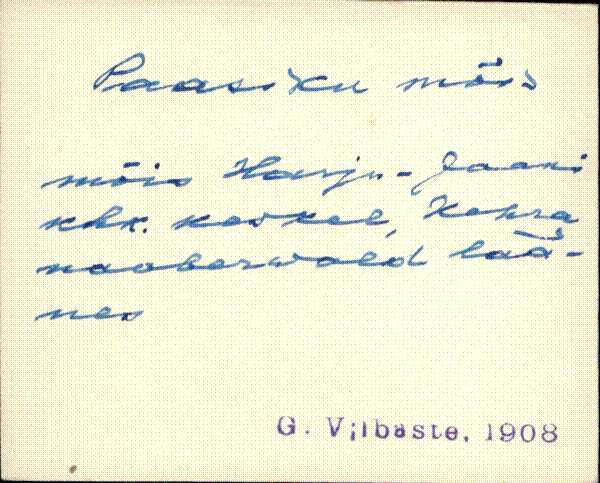 Paasiku mõis
mõis Harju-Jaani
khk. keskel, Kehra
naaberwald lää-
nes
G. Vilbaste, 1908